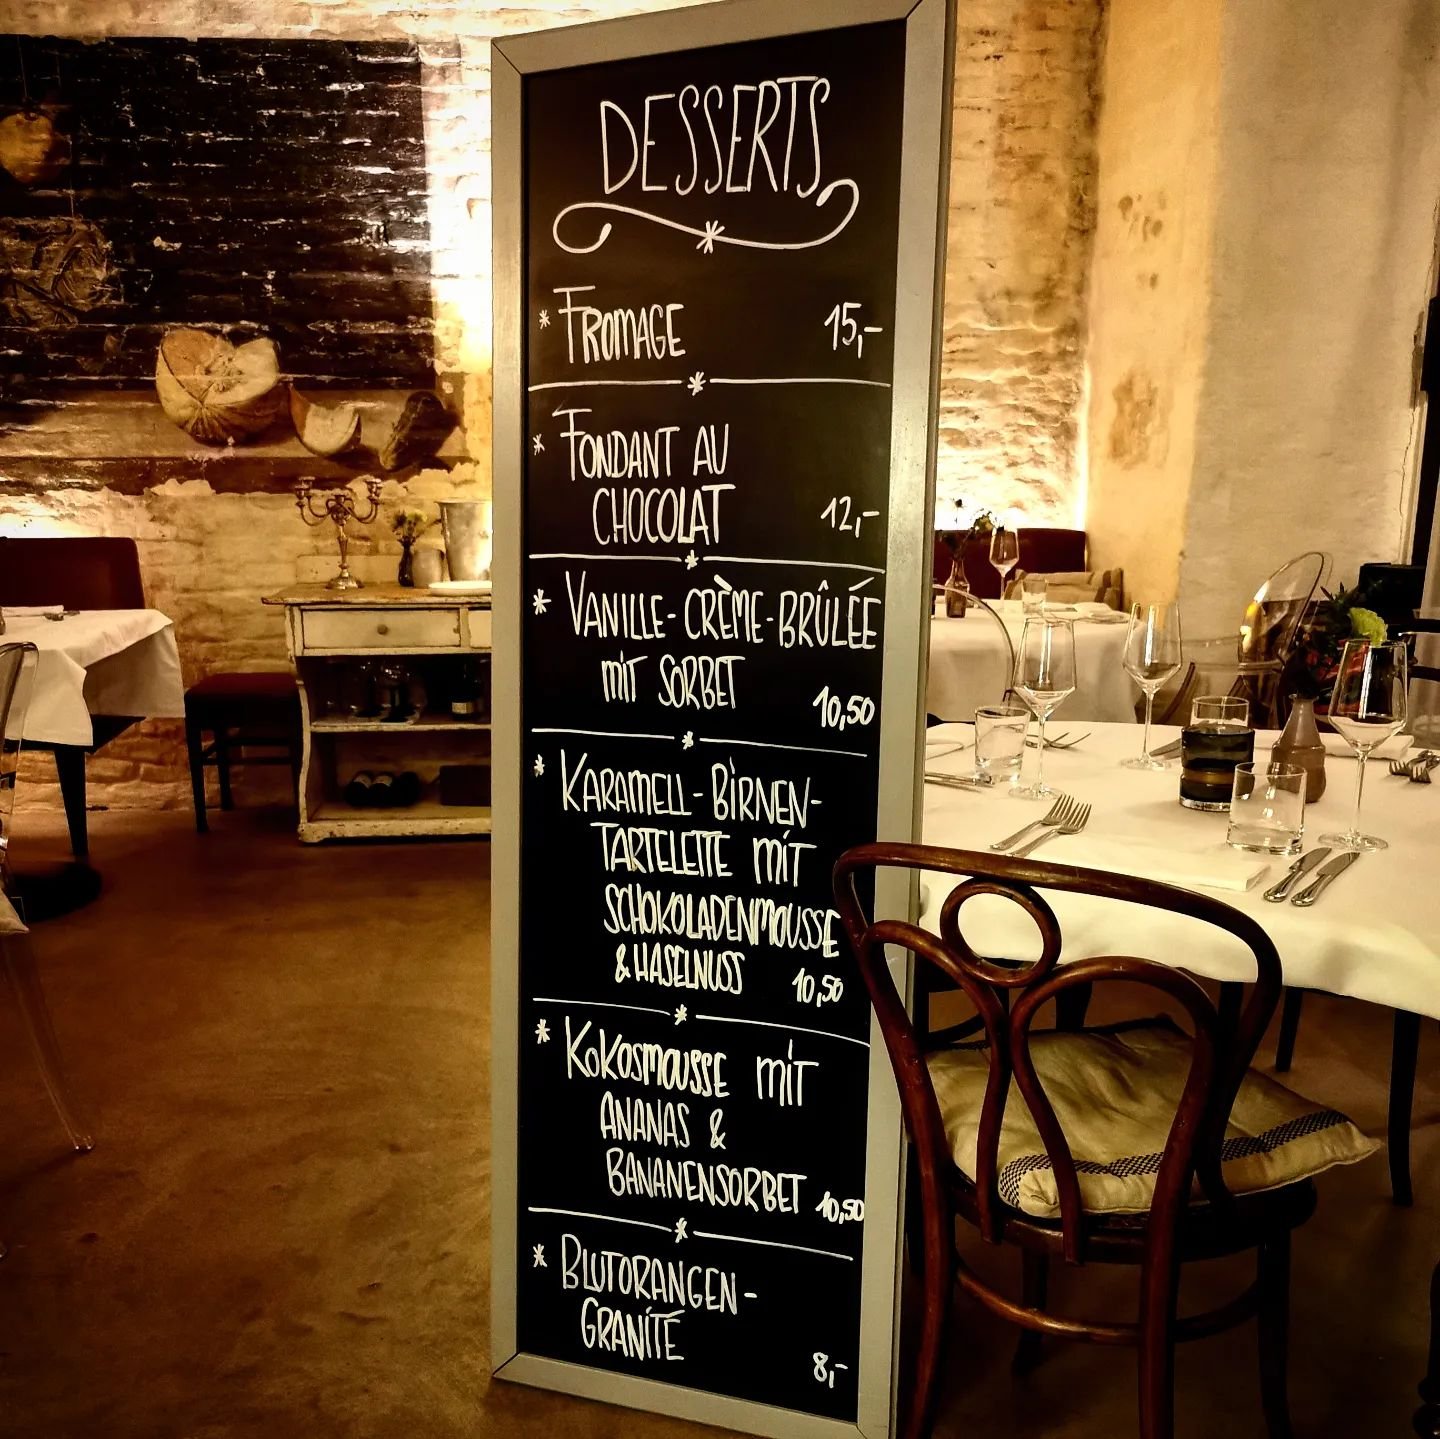 DESSERTS
* FROMAGE 15,-
* FONDANT AU
CHOCOLAT 12,-
* VANILLE-CRÈME-BRÛLÉE
MIT SORBET 10,50
* KARAMELL-BIRNEN-
TARTELETTE MIT
SCHOKOLADENMOUSSE
& HASELNUSS 10,50
* KOKOSMOUSSE MIT
ANANAS &
BANANENSORBET 10,50
* BLUTORANGEN-
GRANITÉ 8,-